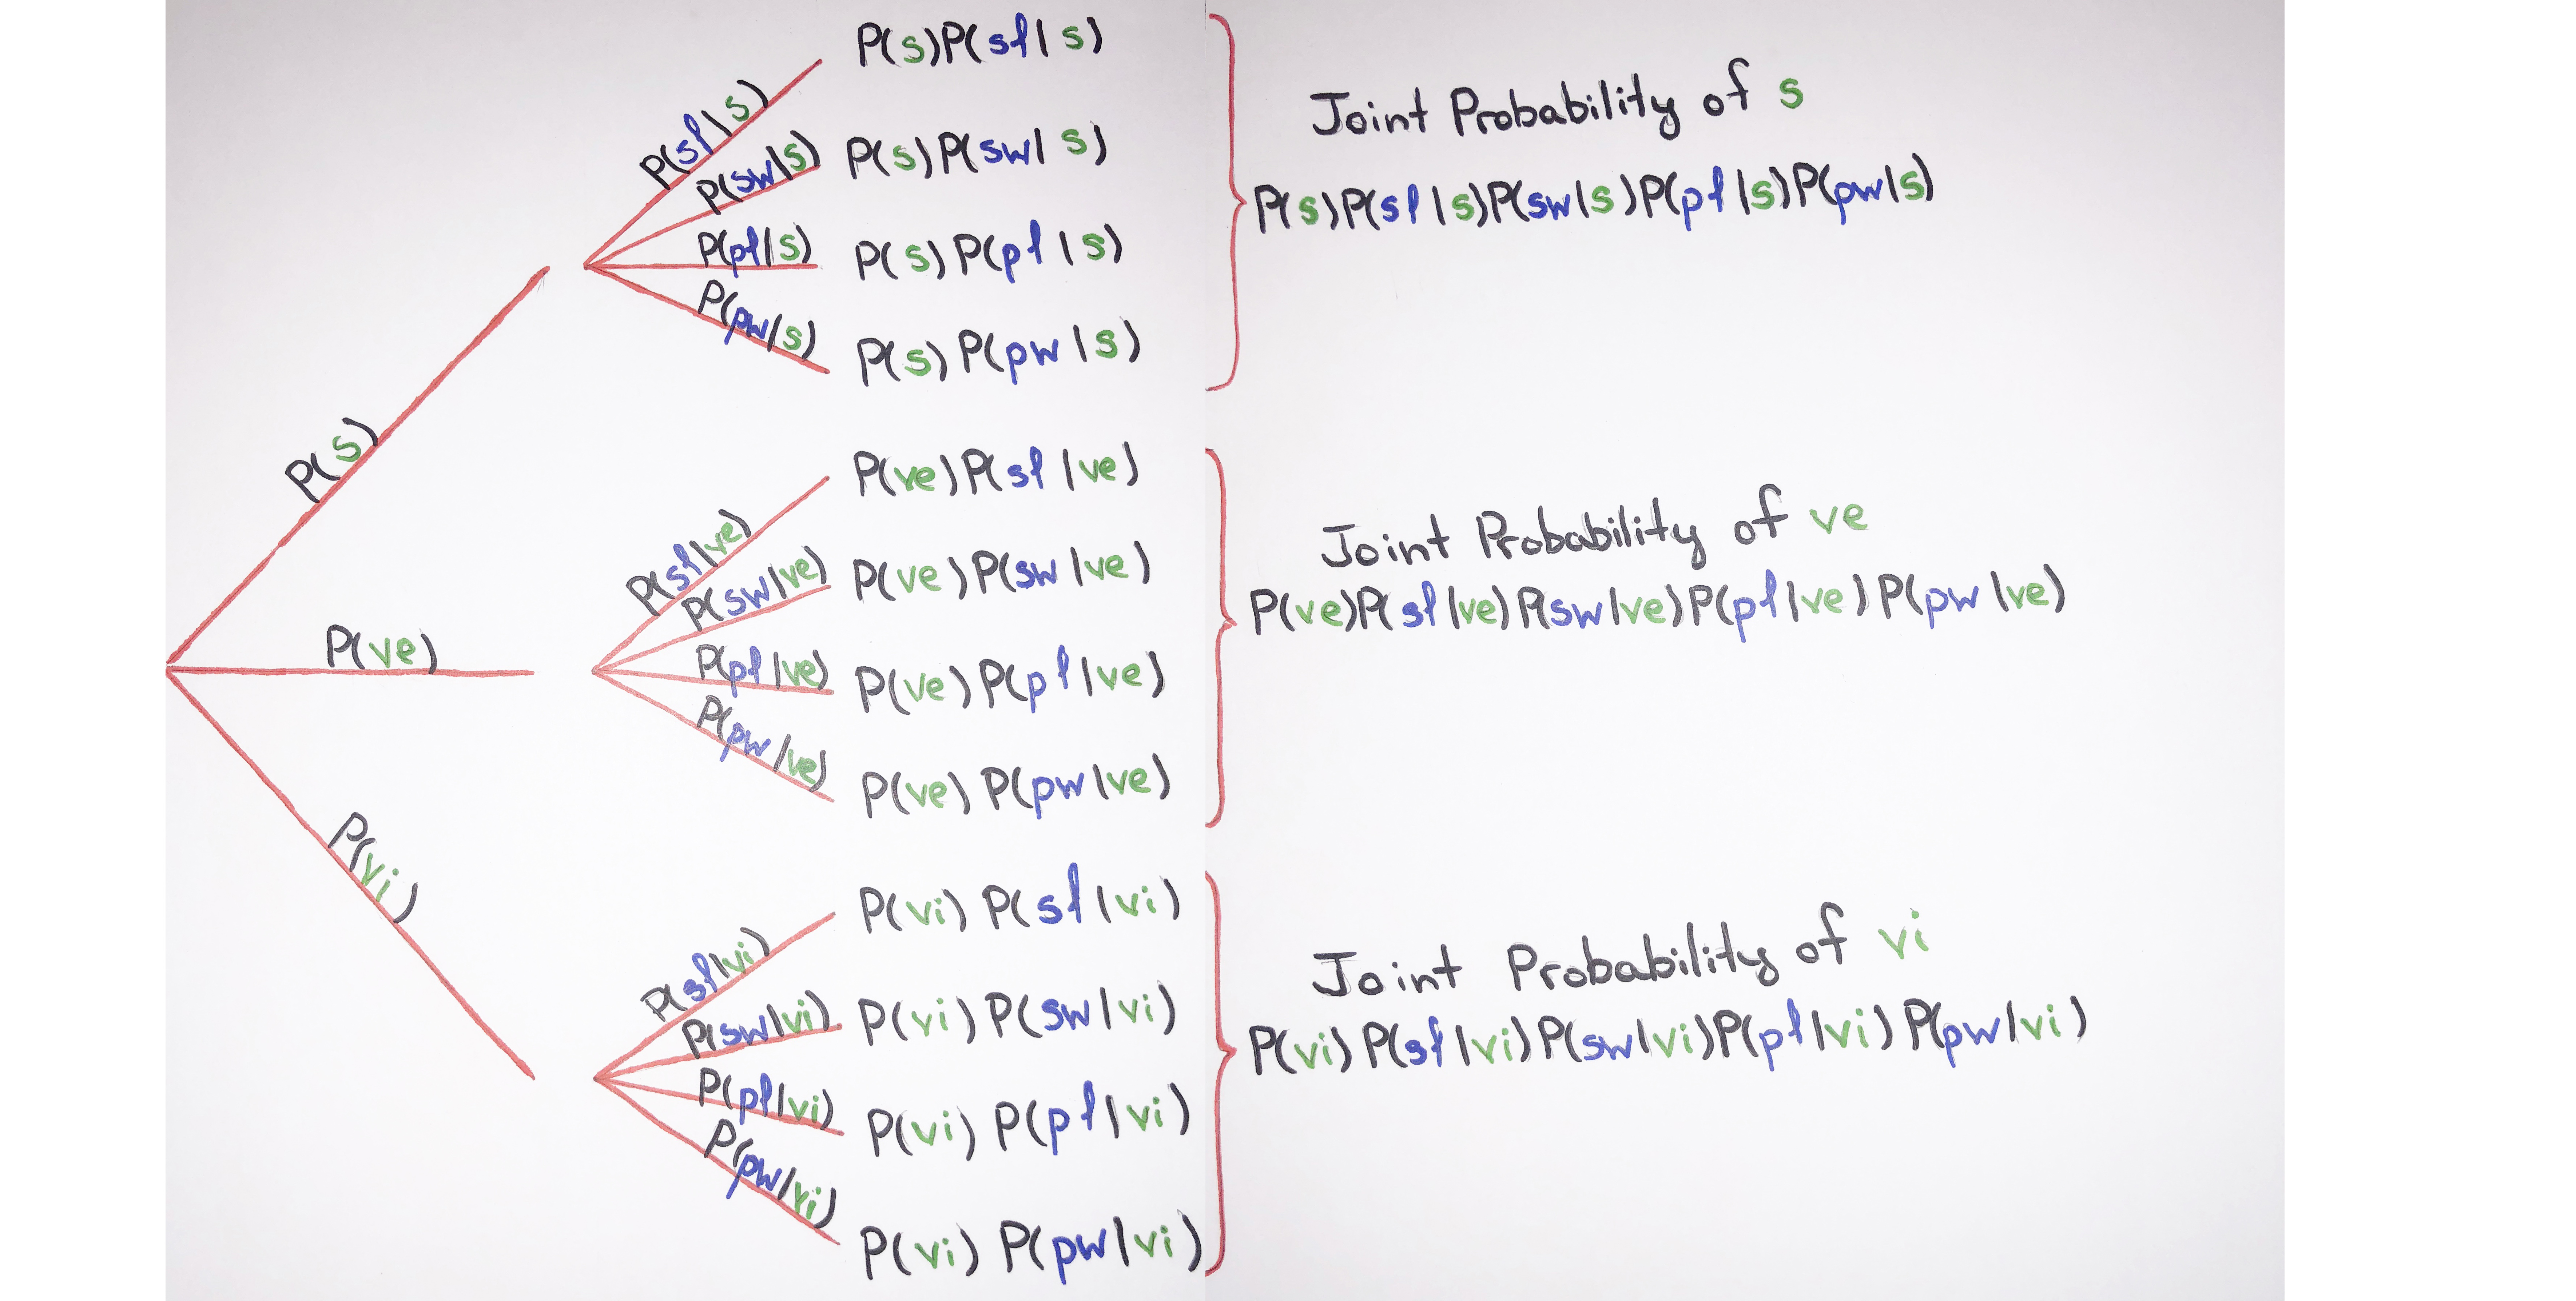 P(s)
P(ve)
P(vi)
P(sl|s)
P(sw|s)
P(pl|s)
P(pw|s)
P(s)P(sl|s)
P(s)P(sw|s)
P(s)P(pl|s)
P(s)P(pw|s)
Joint Probability of s
P(s)P(sl|s)P(sw|s)P(pl|s)P(pw|s)
P(sl|ve)
P(sw|ve)
P(pl|ve)
P(pw|ve)
P(ve)P(sl|ve)
P(ve)P(sw|ve)
P(ve)P(pl|ve)
P(ve)P(pw|ve)
Joint Probability of ve
P(ve)P(sl|ve)P(sw|ve)P(pl|ve)P(pw|ve)
P(sl|vi)
P(sw|vi)
P(pl|vi)
P(pw|vi)
P(vi)P(sl|vi)
P(vi)P(sw|vi)
P(vi)P(pl|vi)
P(vi)P(pw|vi)
Joint Probability of vi
P(vi)P(sl|vi)P(sw|vi)P(pl|vi)P(pw|vi)